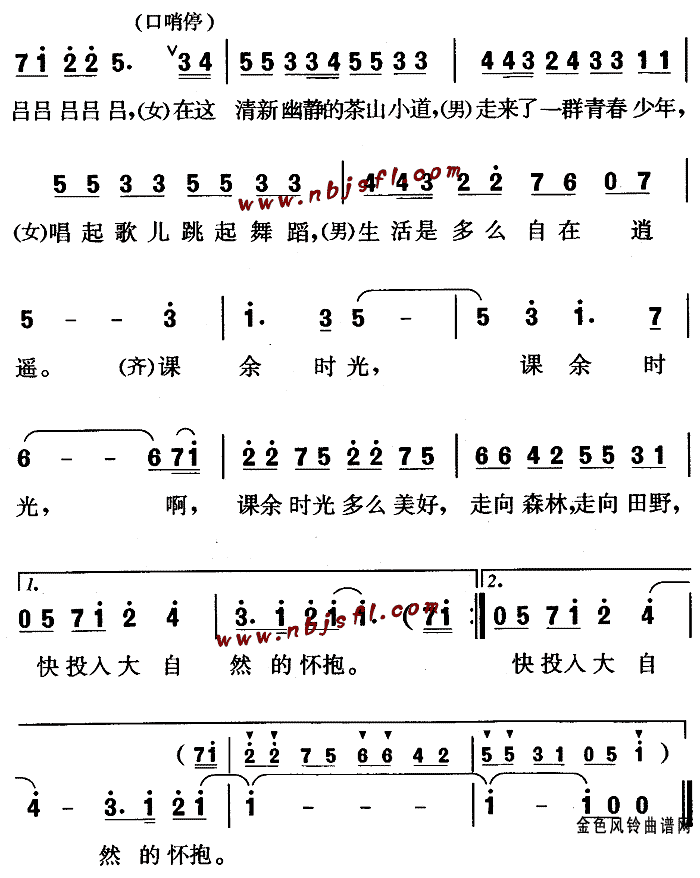 (口哨停)
7 1 2 2 5. ∨ 3 4 | 5 5 3 3 4 5 5 3 3 | 4 4 3 2 4 3 3 1 1 |
吕吕 吕吕 吕,(女)在这 清新幽静的茶山小道,(男)走来了一群青春少年,
5 5 3 3 5 5 3 3 | 4 4 3 2 2 7 6 0 7 |
www.nbjsfl.com
(女)唱起歌儿跳起舞蹈,(男)生活是多么自在 逍
5 - - 3 | 1. 3 5 - | 5 3 1. 7 |
遥。 (齐)课 余 时光, 课余 时
6 - - 6 7 1 | 2 2 7 5 2 2 7 5 | 6 6 4 2 5 5 3 1 |
光, 啊, 课余时光多么美好, 走向森林,走向田野,
1. 2.
0 5 7 1 2 4 | 3. 1 2 1 1. ( 7 1 :‖ 0 5 7 1 2 4 |
www.nbjsfl.com
快投入大 自 然 的怀抱。 快投入大 自
( 7 1 | 2 2 7 5 6 6 4 2 | 5 5 3 1 0 5 1 )
4 - 3. 1 2 1 | 1 - - - | 1 - 1 0 0 ‖
金色风铃曲谱网
然 的怀抱。